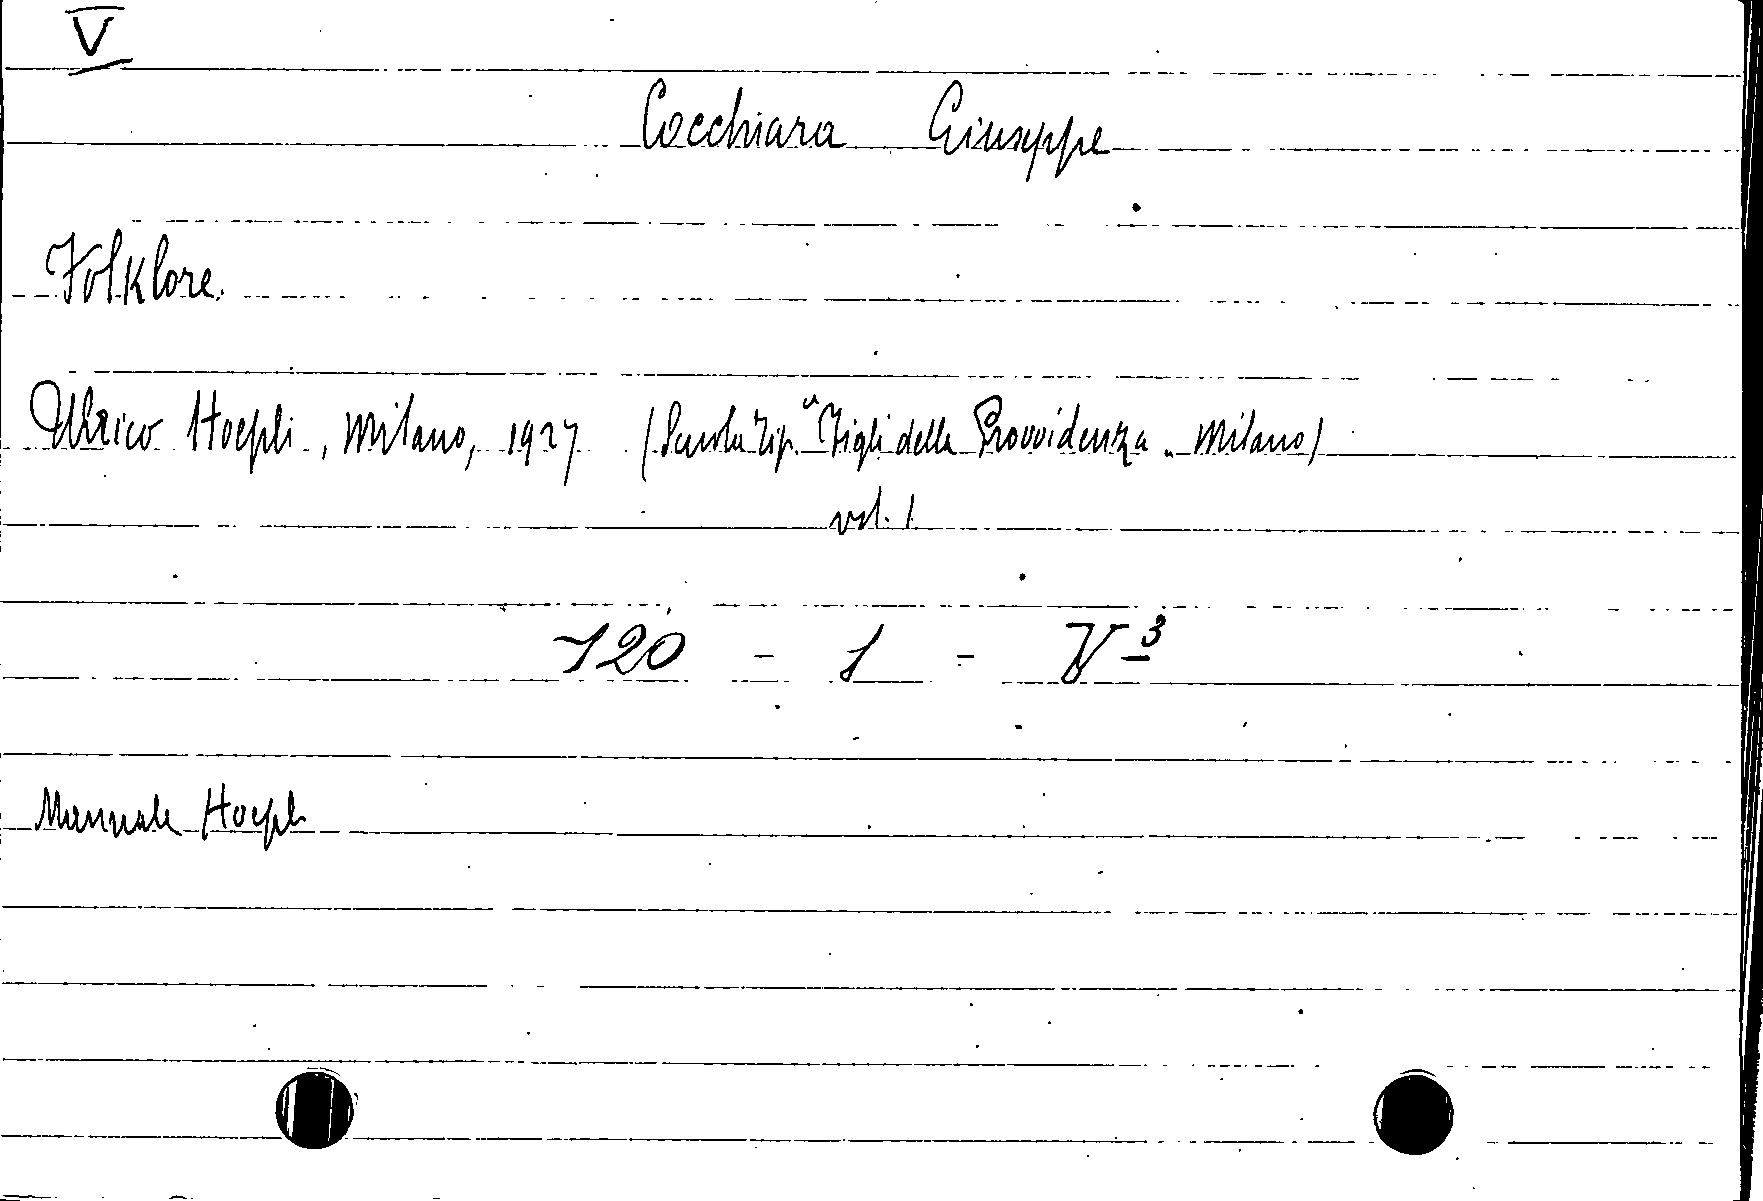 V
Cocchiara Giuseppe
Folklore.
Ulrico Hoepli, Milano, 1927 (Scuola Tip. "Figli della Provvidenza" Milano)
vol. 1
120 - 1 - V 3
Manuale Hoepli